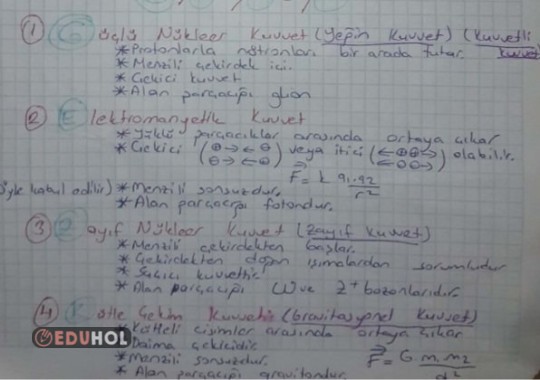 ① Güçlü Nükleer Kuvvet (Yeğin Kuvvet) (Kuvvetli kuvvet)
* Protonlarla nötronları bir arada tutar.
* Menzili çekirdek içi.
* Çekici kuvvet
* Alan parçacığı gluon
② Elektromanyetik Kuvvet
* Yüklü parçacıklar arasında ortaya çıkar
* Çekici (⊕→←⊖ ⊖→←⊕) veya itici (←⊕⊕→ ←⊖⊖→) olabilir.
F = k q1.q2 / r²
kabul edilir) * Menzili sonsuzdur.
* Alan parçacığı fotondur.
③ Zayıf Nükleer Kuvvet (Zayıf Kuvvet)
* Menzili çekirdekten başlar.
* Çekirdekten doğan ışımalardan sorumludur
* kuvvettir
* Alan parçacığı W ve Z+ bozonlarıdır.
4 Kütle Çekim Kuvveti (Gravitasyonel Kuvvet)
* Kütleli cisimler arasında ortaya çıkar
EDUHOL
* Daima çekicidir.
* Menzili sonsuzdur.
F = G m m2 / d²
* Alan parçacığı gravitondur.